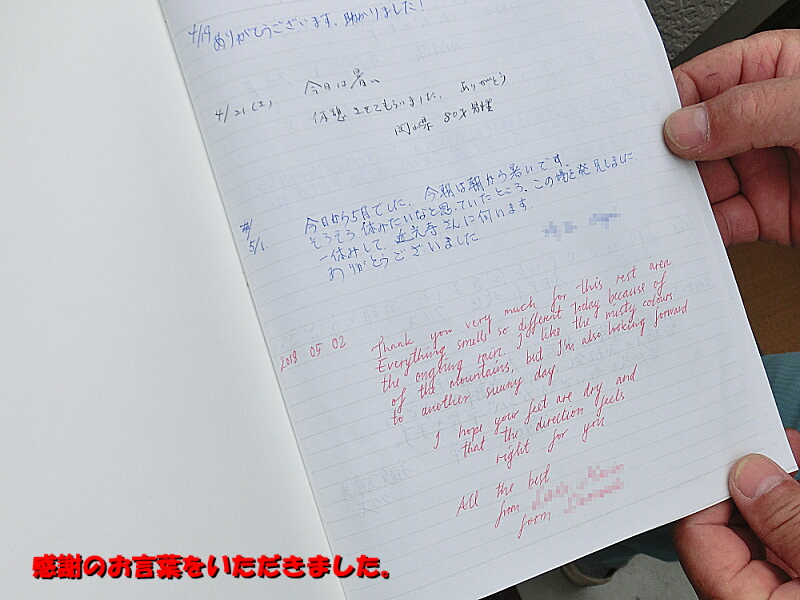 4/19 ありがとうございます。助かりました!
今日は暑い
4/21(土) 休憩させてもらいました。ありがとう
岡山県 80才男性
5/1 今日から5月でした。今朝は朝から暑いです。
そろそろ休みたいなと思っていたところ、この場を発見しました
一休みして、近光寺さんに伺います
ありがとうございました
2018 05 02 Thank you very much for this rest area.
Everything smells so different today because of
the ongoing rain. I like the misty colours
of the mountains, but I'm also looking forward
to another sunny day.
I hope your feet are dry and
that the direction feels
right for you
All the best
from
from
感謝のお言葉をいただきました。